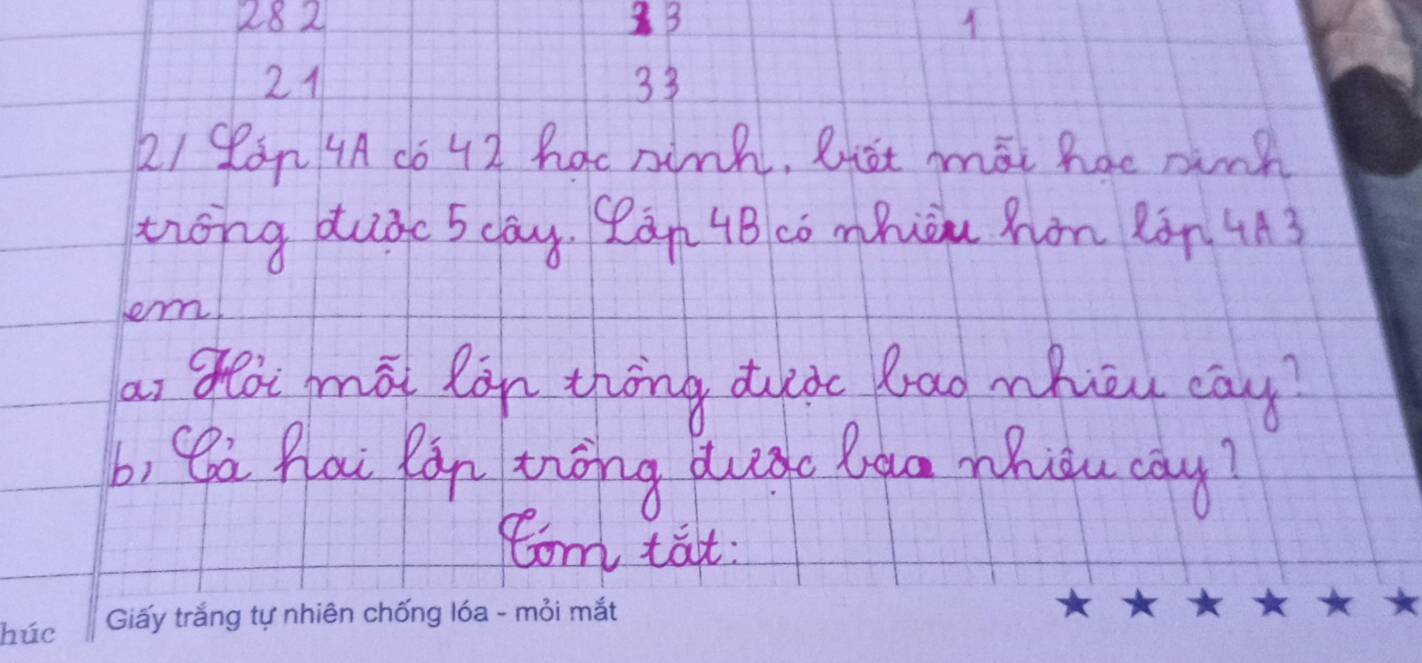 282 33 1
21 33
2/ Lớp 4A có 42 học sinh, biết mỗi học sinh
trồng được 5 cây. Lớp 4B có nhiều hơn lớp 4A 3
em
a, Hỏi mỗi lớp trồng được bao nhiêu cây?
b, Cả hai lớp trồng được bao nhiêu cây?
Tóm tắt:
húc Giấy trắng tự nhiên chống lóa - mỏi mắt